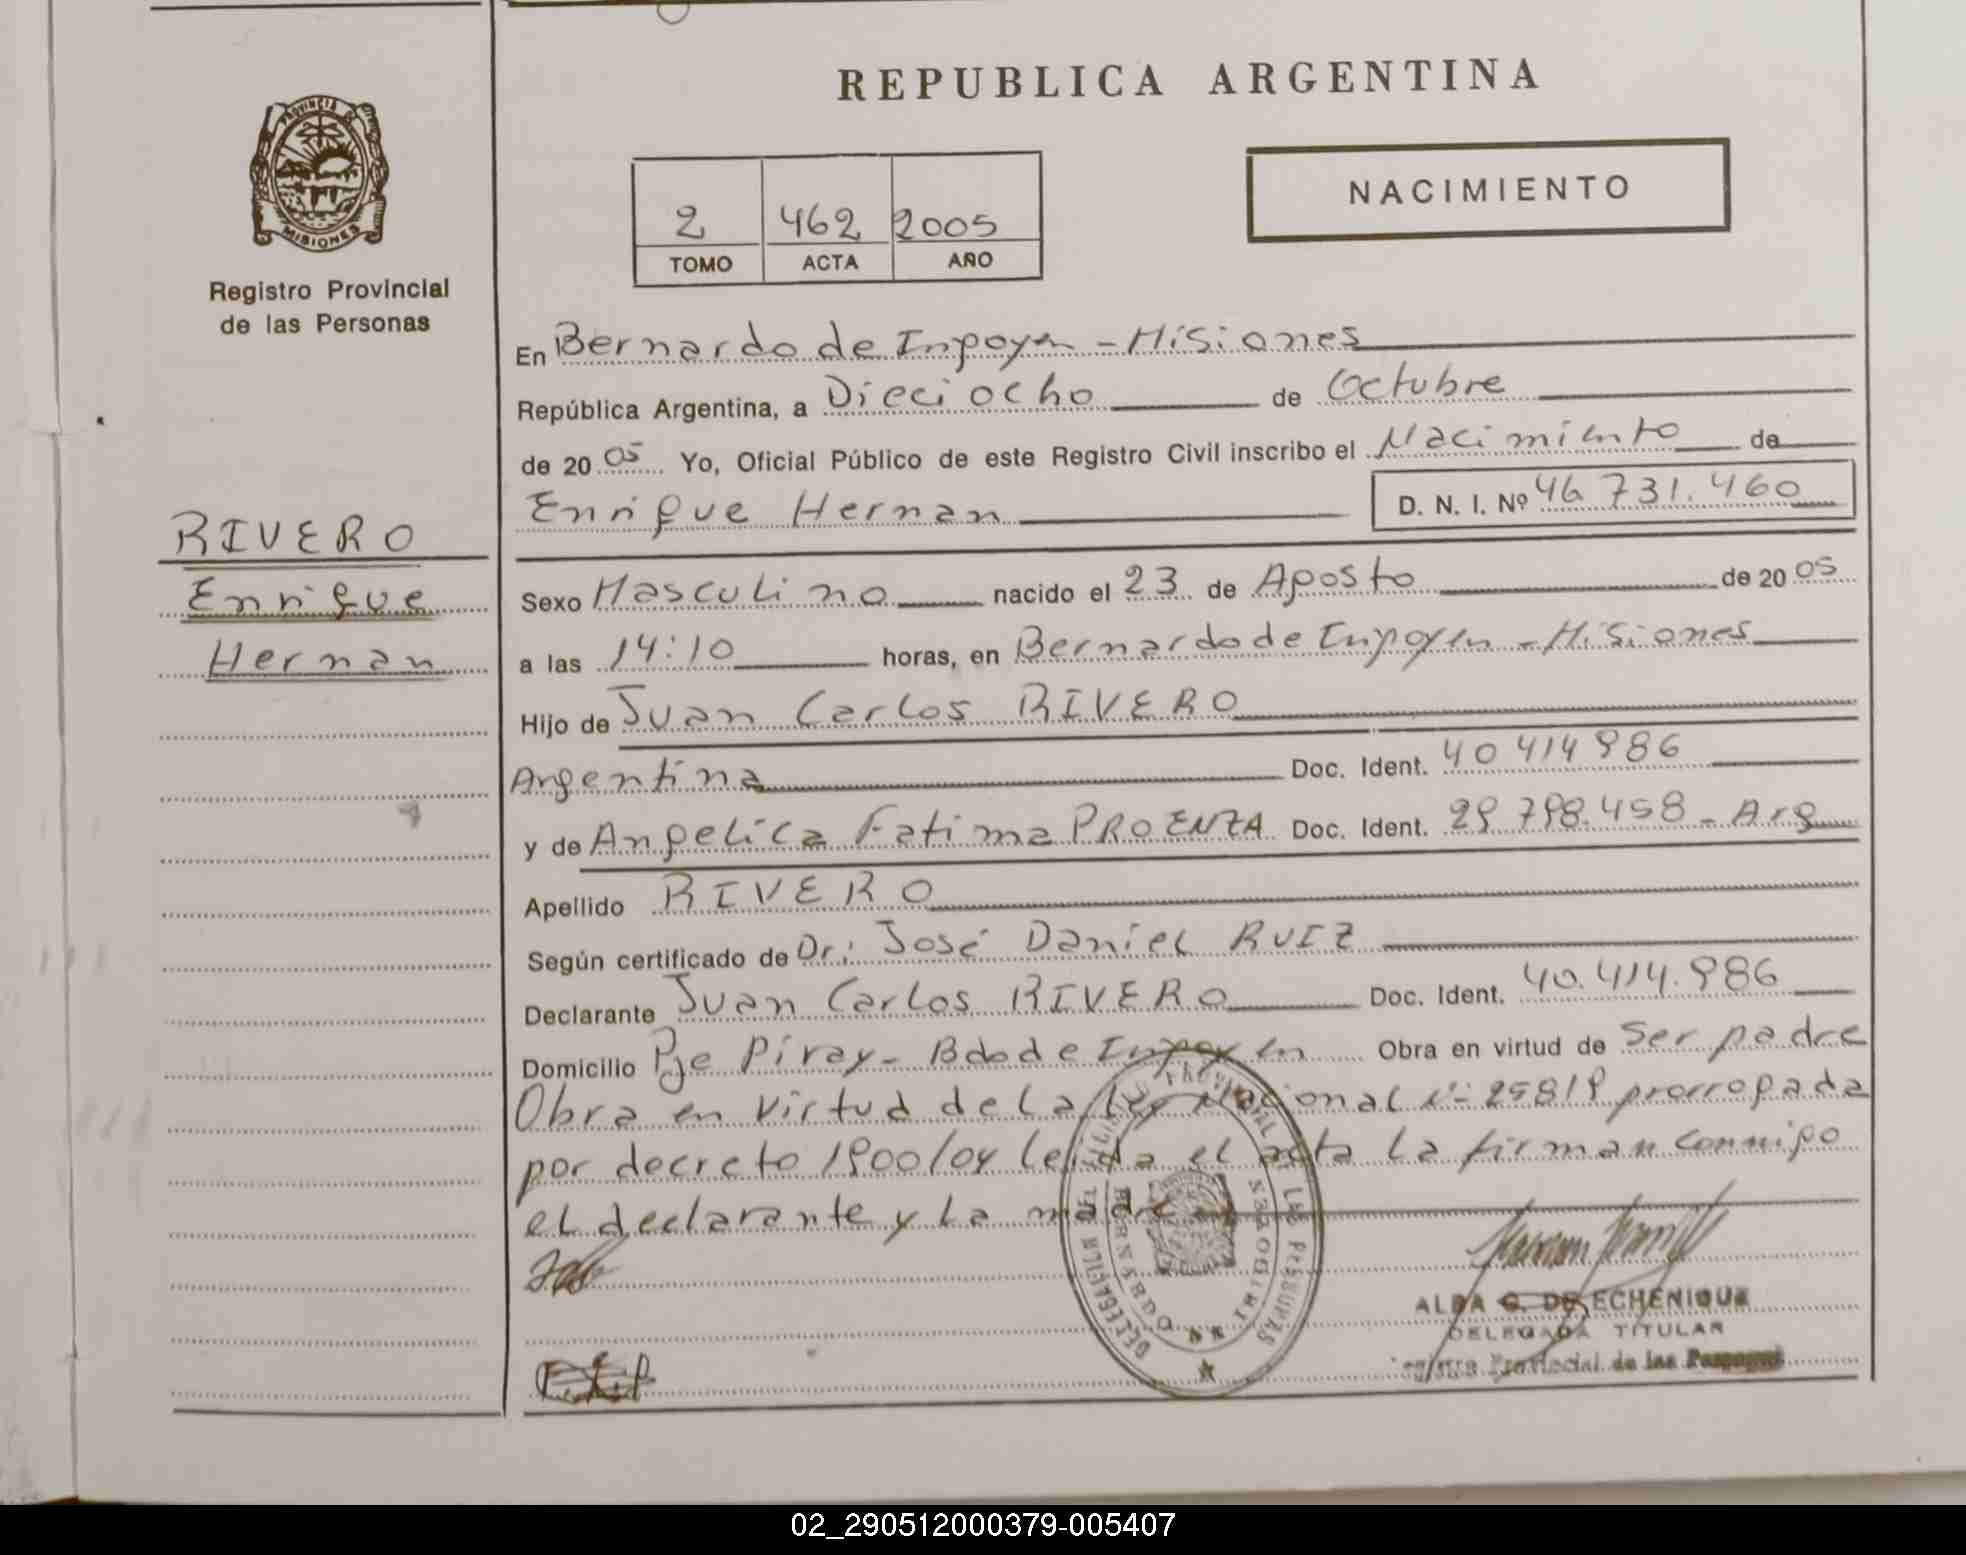 REPUBLICA ARGENTINA
PROVINCIA DE
MISIONES
Registro Provincial
de las Personas
2 462 2005
TOMO ACTA AÑO
NACIMIENTO
En Bernardo de Irigoyen - Misiones
República Argentina, a Dieciocho de Octubre
de 2005 Yo, Oficial Público de este Registro Civil inscribo el Nacimiento de
Enrique Hernan D. N. I. Nº 46.731.460
RIVERO
Enrique
Hernan
Sexo Masculino nacido el 23 de Agosto de 2005
a las 14:10 horas, en Bernardo de Irigoyen - Misiones
Hijo de Juan Carlos RIVERO
Argentina Doc. Ident. 40 414 986
y de Angelica Fatima PROENZA Doc. Ident. 29.798.458 - Arg
Apellido RIVERO
Según certificado de Dr: José Daniel RUIZ
Declarante Juan Carlos RIVERO Doc. Ident. 40.414.986
Domicilio Pje Piray - Bdo de Irigoyen Obra en virtud de Ser padre
Obra en virtud de la Ley Nacional Nº 25819 prorrogada
por decreto 1900/04 leida el acta la firman conmigo
el declarante y la madre
ALBA G. DE ECHENIQUE
DELEGADA TITULAR
Registro Provincial de las Personas
02_290512000379-005407